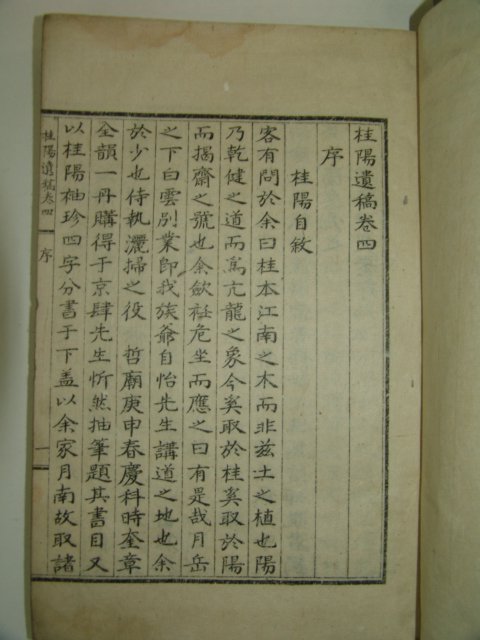 桂陽遺稿卷四
序
桂陽自敘
客有問於余曰桂本江南之木而非玆土之植也陽
乃乾健之道而爲亢龍之象今奚取於桂奚取於陽
而揭齋之號也余斂袵危坐而應之曰有是哉月岳
之下白雲別業卽我族爺自怡先生講道之地也余
於少也侍執灑掃之役 哲廟庚申春慶科時奎章
全韻一冊購得于京肆先生忻然抽筆題其書目又
以桂陽袖珍四字分書于下盖以余家月南故取諸
桂陽遺稿卷四 序 一